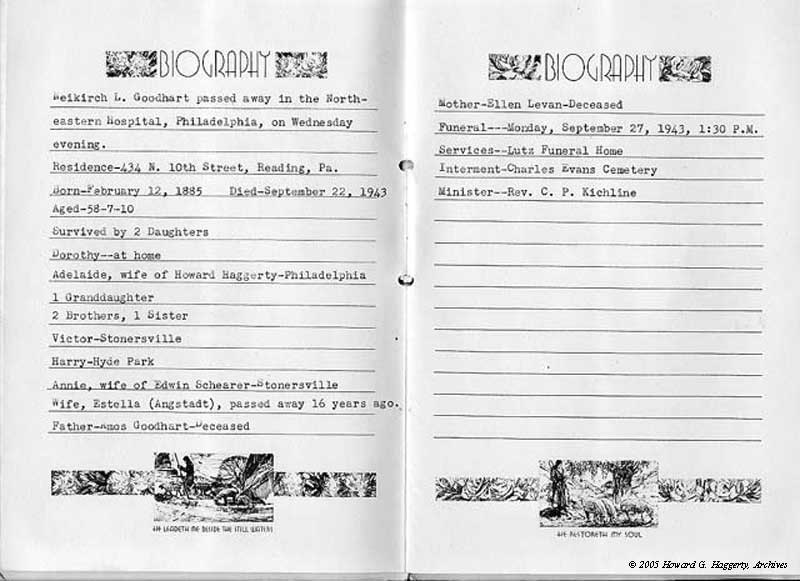 BIOGRAPHY
Weikirch L. Goodhart passed away in the North-
eastern Hospital, Philadelphia, on Wednesday
evening.
Residence-434 N. 10th Street, Reading, Pa.
Born-February 12, 1885 Died-September 22, 1943
Aged-58-7-10
Survived by 2 Daughters
Dorothy--at home
Adelaide, wife of Howard Haggerty-Philadelphia
1 Granddaughter
2 Brothers, 1 Sister
Victor-Stonersville
Harry-Hyde Park
Annie, wife of Edwin Schearer-Stonersville
Wife, Estella (Angstadt), passed away 16 years ago.
Father-Amos Goodhart-Deceased
HE LEADETH ME BESIDE THE STILL WATERS
BIOGRAPHY
Mother-Ellen Levan-Deceased
Funeral---Monday, September 27, 1943, 1:30 P.M.
Services--Lutz Funeral Home
Interment-Charles Evans Cemetery
Minister--Rev. C. P. Kichline
HE RESTORETH MY SOUL
© 2005 Howard G. Haggerty, Archives